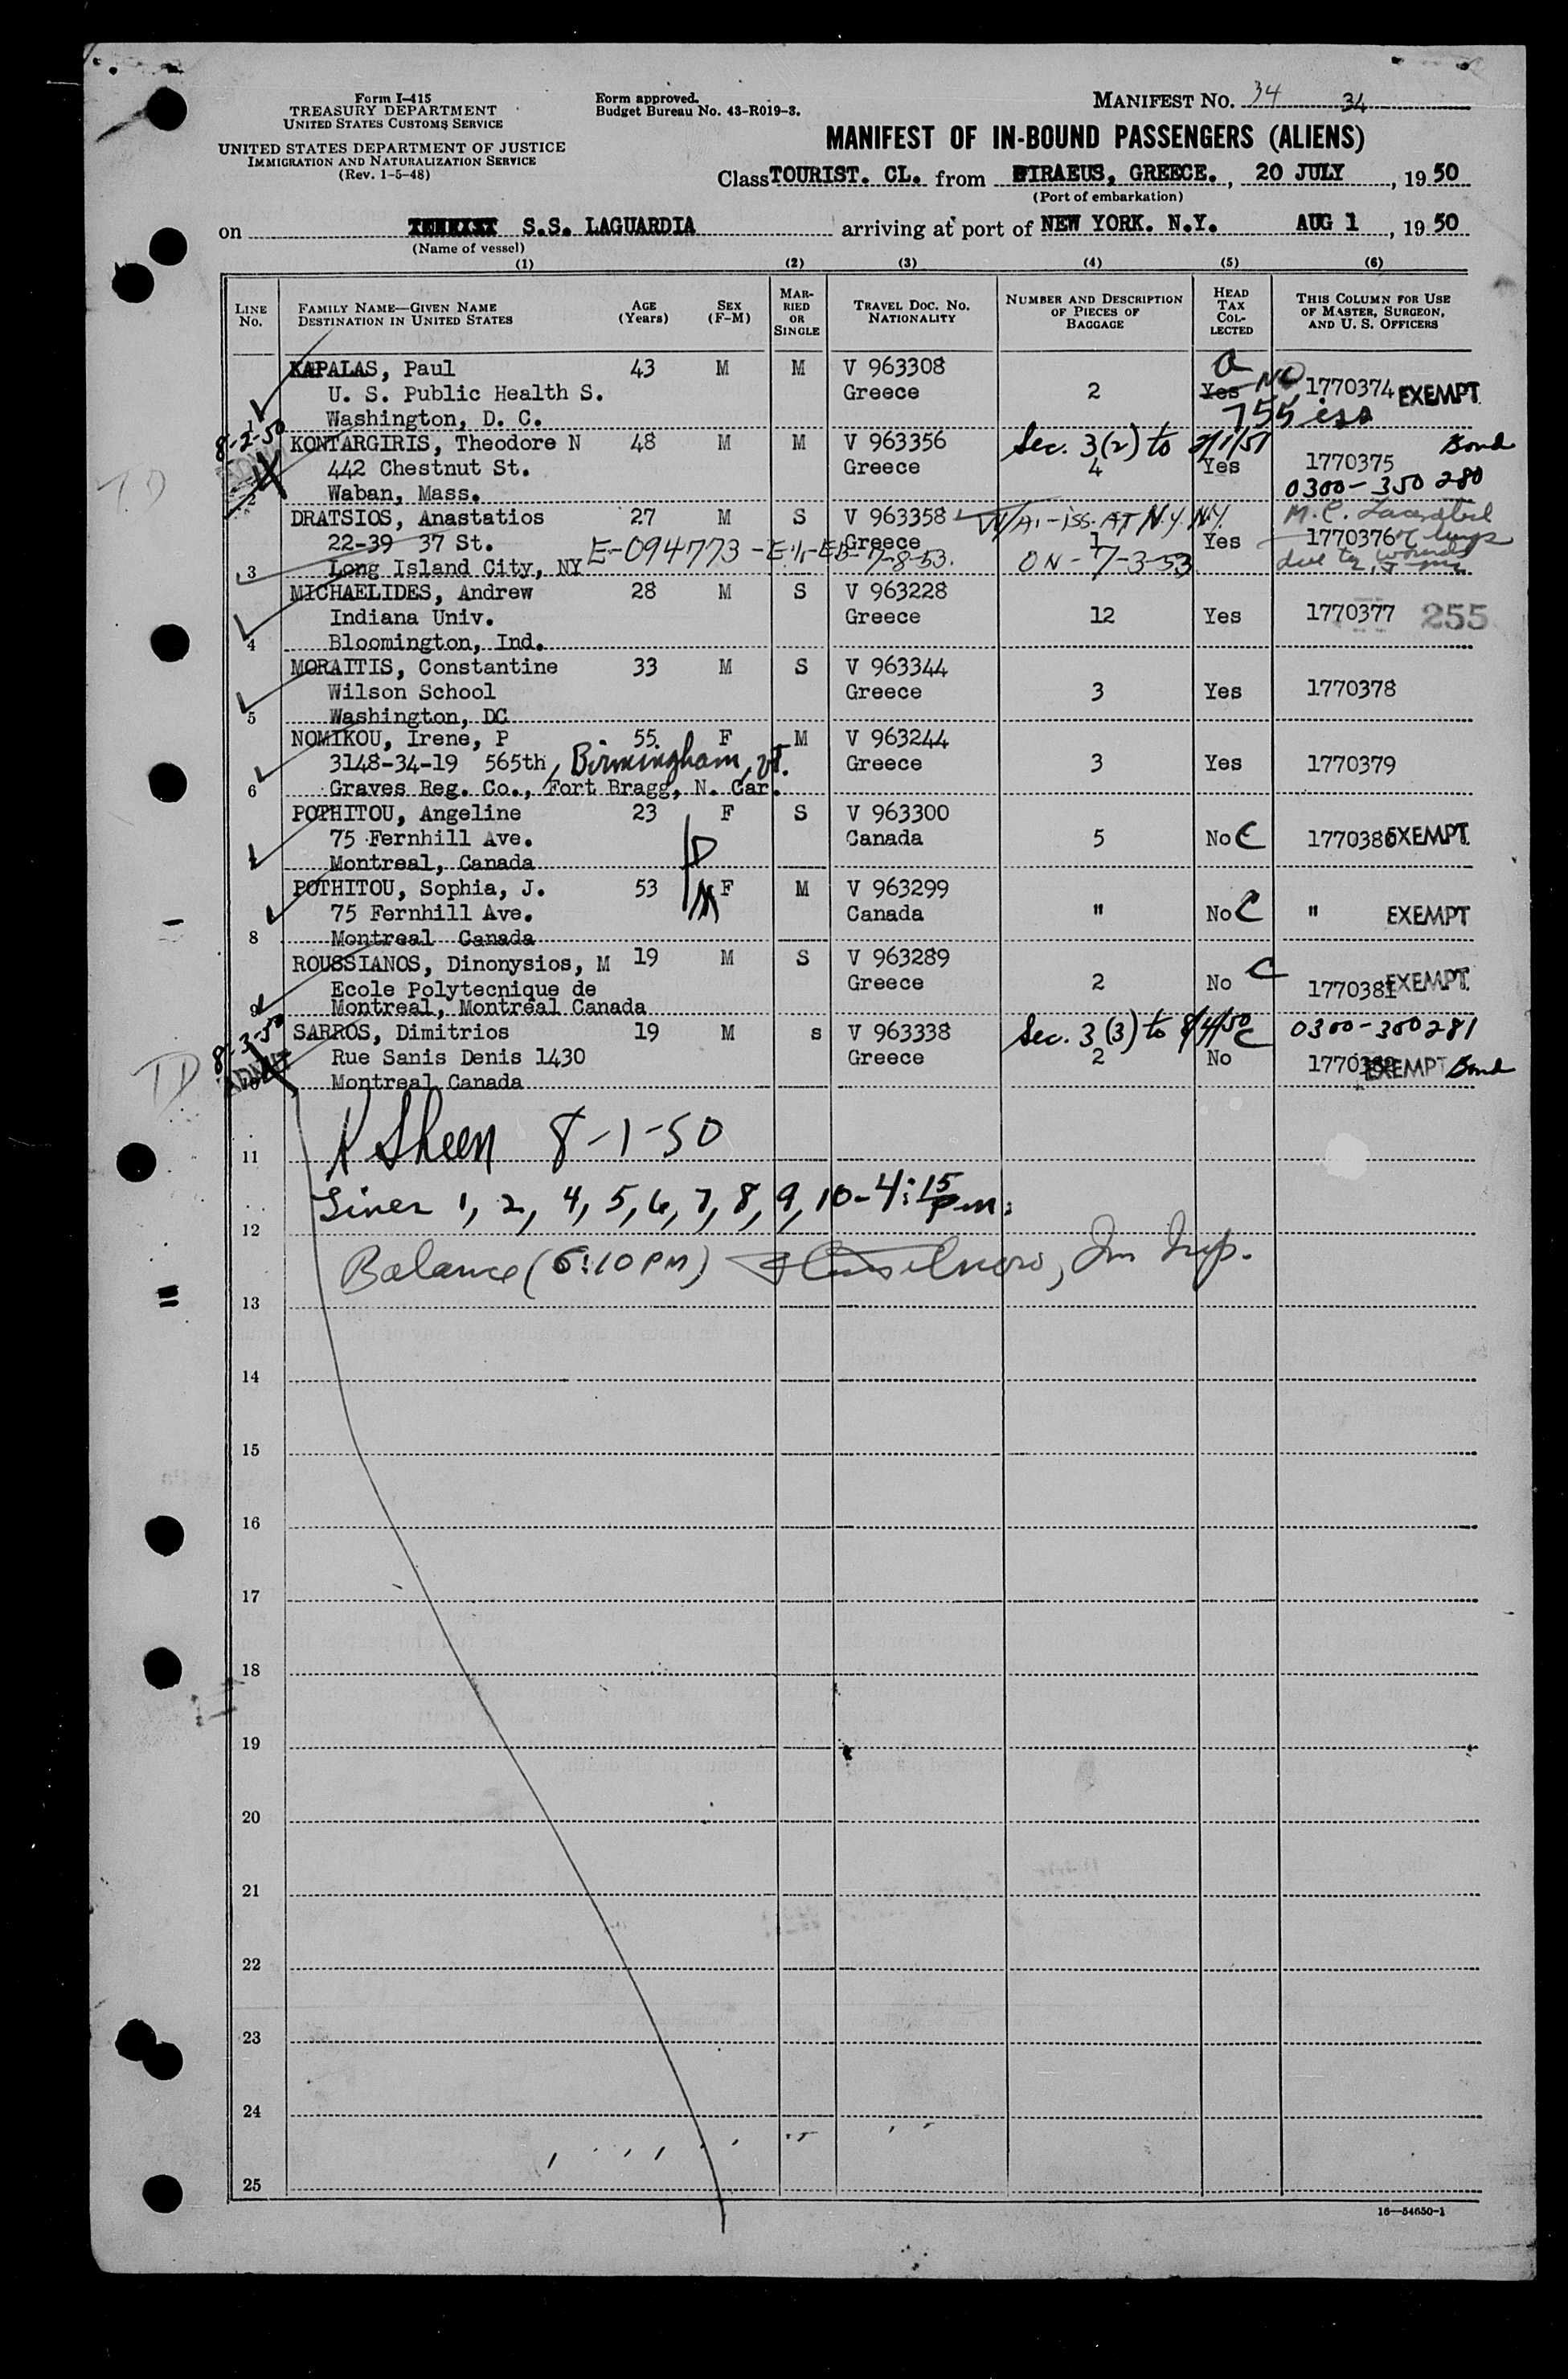 Form I-415
TREASURY DEPARTMENT
UNITED STATES CUSTOMS SERVICE
UNITED STATES DEPARTMENT OF JUSTICE
IMMIGRATION AND NATURALIZATION SERVICE
(Rev. 1-5-48)
Form approved.
Budget Bureau No. 43-R019-3.
MANIFEST NO. 34 34
MANIFEST OF IN-BOUND PASSENGERS (ALIENS)
Class TOURIST. CL. from PIRAEUS, GREECE., 20 JULY, 1950
(Port of embarkation)
on S.S. LAGUARDIA arriving at port of NEW YORK. N.Y. AUG 1, 1950
(Name of vessel)
(1) (2) (3) (4) (5) (6)
LINE No. FAMILY NAME—GIVEN NAME DESTINATION IN UNITED STATES AGE (Years) SEX (F-M) MARRIED OR SINGLE TRAVEL DOC. NO. NATIONALITY NUMBER AND DESCRIPTION OF PIECES OF BAGGAGE HEAD TAX COLLECTED THIS COLUMN FOR USE OF MASTER, SURGEON, AND U. S. OFFICERS
KAPALAS, Paul 43 M M V 963308 a
U. S. Public Health S. Greece 2 Yes NO 1770374 EXEMPT
1 Washington, D. C. 755 iss
8-2-50 KONTARGIRIS, Theodore N 48 M M V 963356 Sec. 3(2) to 2/1/51 Bond
TD 442 Chestnut St. Greece 4 Yes 1770375
2 Waban, Mass. 0300-350280
DRATSIOS, Anastatios 27 M S V 963358 iss. AT N.Y. N.Y. M.C.
22-39 37 St. E-094773 Greece 1 Yes 1770376 lungs
3 Long Island City, NY 7-8-53. ON-7-3-53 due to
MICHAELIDES, Andrew 28 M S V 963228
Indiana Univ. Greece 12 Yes 1770377 255
4 Bloomington, Ind.
MORAITIS, Constantine 33 M S V 963344
Wilson School Greece 3 Yes 1770378
5 Washington, DC
NOMIKOU, Irene, P 55 F M V 963244
3148-34-19 565th, Birmingham, Greece 3 Yes 1770379
6 Graves Reg. Co., Fort Bragg, N. Car.
POTHITOU, Angeline 23 F S V 963300
75 Fernhill Ave. Canada 5 No C 1770380 EXEMPT
Montreal, Canada
POTHITOU, Sophia, J. 53 F M V 963299
75 Fernhill Ave. Canada " No C " EXEMPT
8 Montreal Canada
ROUSSIANOS, Dinonysios, M 19 M S V 963289
Ecole Polytecnique de Greece 2 No C 1770381 EXEMPT
9 Montreal, Montreal Canada
8-3-50 SARROS, Dimitrios 19 M s V 963338 Sec. 3(3) to 8/4/50 C 0300-300281
TD Rue Sanis Denis 1430 Greece 2 No EXEMPT Bond
10 Montreal Canada
11 K Sheen 8-1-50
12 Lines 1, 2, 4, 5, 6, 7, 8, 9, 10-4:15 pm.
13 Balance (6:10 PM) Im Insp.
14
15
16
17
18
19
20
21
22
23
24
25
16—54650-1